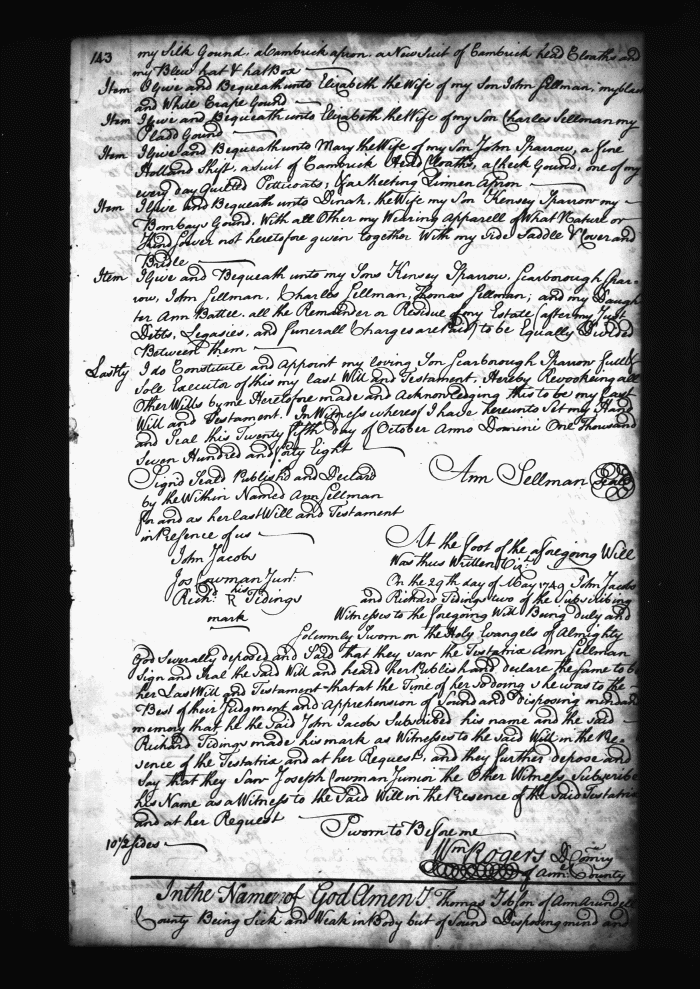 143 my Silk Gound, a Cambrick apron, a New Suit of Cambrick head Cloaths and
my Blew hat & hat Box
Item I Give and Bequeath unto Elizabeth the Wife of my Son John Sellman, my black
and White Crape Gound
Item I Give and Bequeath unto Elizabeth the Wife of my Son Charles Sellman my
Pladd Gound
Item I Give and Bequeath unto Mary the Wife of my Son John Sparrow, a fine
Holland Shift, a suit of Cambrick Head Cloaths, a Check Gound, one of my
every day Quilted Petticoats, & Sheeting Linnen Apron
Item I Give and Bequeath unto Dinah, the Wife my Son Kensey Sparrow my
Bombays Gound, With all Other my Wearing Apparell of What Nature or
Kind soever not heretofore given together With my Side Saddle & Cover and
Bridle
Item I Give and Bequeath unto my Sons Kensey Sparrow, Scarborough Spar-
row, John Sellman, Charles Sellman, Thomas Sellman; and my Daugh
ter Ann Battee, all the Remainder or Residue of my Estate (after my Just
Debts, Legasies, and Funerall Charges are Paid) to be Equally Divided
Between them
Lastly I do Constitute and Appoint my loving Son Scarborough Sparrow full &
Sole Executor of this my last Will and Testament, Hereby Revookeing all
Other Wills by me Heretofore made and Acknowledging this to be my Last
Will and Testament. In Witness whereof I have hereunto Set my Hand
and Seal this Twenty fifth Day of October Anno Domini One Thousand
Seven Hundred and forty Eight
Ann Sellman Seal
Signd Seald Publishd and Declard
by the Within Named Ann Sellman
for and as her last Will and Testament
in Presence of us
John Jacobs
Jos Cowman Junr.
Richd. his R Tidings
mark
At the foot of the aforegoing Will
Was thus Written Vizt.
On the 29th day of May 1749 John Jacobs
and Richard Tidings two of the Subscribing
Witnesses to the foregoing Will Being duly and
Solemnly Sworn on the Holy Evangels of Almighty
God Severally deposed and Said that they saw the Testatrix Ann Sellman
Sign and Seal the said Will and heard Her Publish and declare the same to be
her Last Will and Testament that at the Time of her so doing she was to the
Best of their Judgment and Apprehension of Sound and Disposing mind and
memory that he the Said John Jacobs Subscribed his name and the said
Richard Tidings made his mark as Witnesses to the said Will in the Pre-
sence of the Testatrix and at her Request, and they further depose and
Say that they Saw Joseph Cowman Junior the Other Witness Subscribe
his Name as a Witness to the Said Will in the Presence of the Said Testatrix
and at her Request
Sworn to Before me
10 1/2 Sides
Wm Rogers D Comry
of Ann: County
In the Name of God Amen I Thomas Jobson of Ann Arundel
County Being Sick and Weak in Body but of Sound Disposing mind and